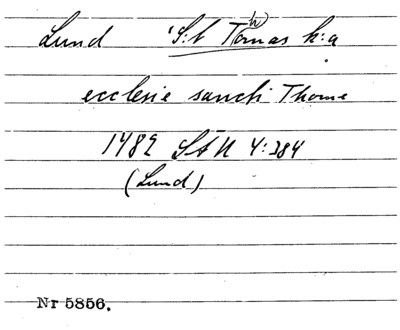 Lund S:t Thomas k:a
ecclesie sancti Thome
1482 StN 4:384
(Lund)
Nr 5856.